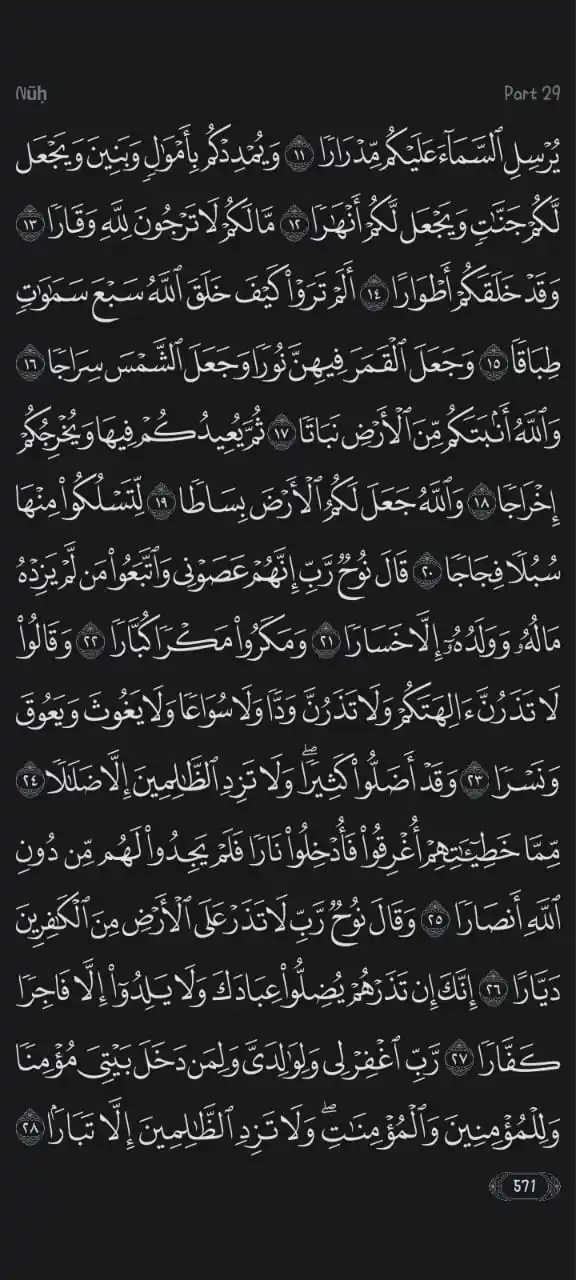 Nūḥ Part 29
يُرْسِلِ ٱلسَّمَآءَ عَلَيْكُم مِّدْرَارًا ١١ وَيُمْدِدْكُم بِأَمْوَٰلٍ وَبَنِينَ وَيَجْعَل
لَّكُمْ جَنَّٰتٍ وَيَجْعَل لَّكُمْ أَنْهَٰرًا ١٢ مَّا لَكُمْ لَا تَرْجُونَ لِلَّهِ وَقَارًا ١٣
وَقَدْ خَلَقَكُمْ أَطْوَارًا ١٤ أَلَمْ تَرَوْا۟ كَيْفَ خَلَقَ ٱللَّهُ سَبْعَ سَمَٰوَٰتٍ
طِبَاقًا ١٥ وَجَعَلَ ٱلْقَمَرَ فِيهِنَّ نُورًا وَجَعَلَ ٱلشَّمْسَ سِرَاجًا ١٦
وَٱللَّهُ أَنۢبَتَكُم مِّنَ ٱلْأَرْضِ نَبَاتًا ١٧ ثُمَّ يُعِيدُكُمْ فِيهَا وَيُخْرِجُكُمْ
إِخْرَاجًا ١٨ وَٱللَّهُ جَعَلَ لَكُمُ ٱلْأَرْضَ بِسَاطًا ١٩ لِّتَسْلُكُوا۟ مِنْهَا
سُبُلًا فِجَاجًا ٢٠ قَالَ نُوحٌ رَّبِّ إِنَّهُمْ عَصَوْنِى وَٱتَّبَعُوا۟ مَن لَّمْ يَزِدْهُ
مَالُهُۥ وَوَلَدُهُۥٓ إِلَّا خَسَارًا ٢١ وَمَكَرُوا۟ مَكْرًا كُبَّارًا ٢٢ وَقَالُوا۟
لَا تَذَرُنَّ ءَالِهَتَكُمْ وَلَا تَذَرُنَّ وَدًّا وَلَا سُوَاعًا وَلَا يَغُوثَ وَيَعُوقَ
وَنَسْرًا ٢٣ وَقَدْ أَضَلُّوا۟ كَثِيرًا ۖ وَلَا تَزِدِ ٱلظَّٰلِمِينَ إِلَّا ضَلَٰلًا ٢٤
مِّمَّا خَطِيٓـَٰٔتِهِمْ أُغْرِقُوا۟ فَأُدْخِلُوا۟ نَارًا فَلَمْ يَجِدُوا۟ لَهُم مِّن دُونِ
ٱللَّهِ أَنصَارًا ٢٥ وَقَالَ نُوحٌ رَّبِّ لَا تَذَرْ عَلَى ٱلْأَرْضِ مِنَ ٱلْكَٰفِرِينَ
دَيَّارًا ٢٦ إِنَّكَ إِن تَذَرْهُمْ يُضِلُّوا۟ عِبَادَكَ وَلَا يَلِدُوٓا۟ إِلَّا فَاجِرًا
كَفَّارًا ٢٧ رَّبِّ ٱغْفِرْ لِى وَلِوَٰلِدَىَّ وَلِمَن دَخَلَ بَيْتِىَ مُؤْمِنًا
وَلِلْمُؤْمِنِينَ وَٱلْمُؤْمِنَٰتِ ۖ وَلَا تَزِدِ ٱلظَّٰلِمِينَ إِلَّا تَبَارًۢا ٢٨
571